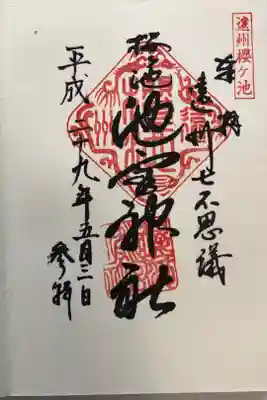 遠州櫻ヶ池
奉拝
遠州七不思議
桜池
池宮神社
平成二十九年五月三日
参拝